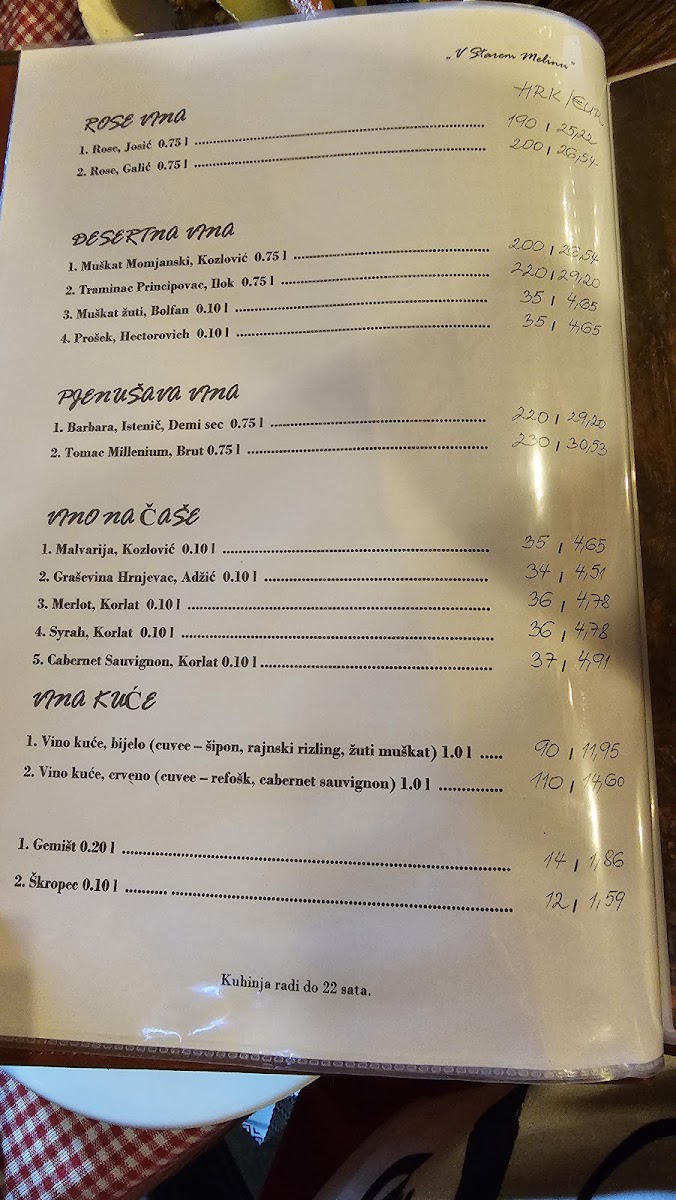 „V Starem Melinu"
HRK/EUR.
ROSE VINA
1. Rose, Josić 0.75 l ........ 190 / 25,22
2. Rose, Galić 0.75 l ........ 200 / 26,54
DESERTNA VINA
1. Muškat Momjanski, Kozlović 0.75 l ........ 200 / 26,54
2. Traminac Principovac, Ilok 0.75 l ........ 220 / 29,20
3. Muškat žuti, Bolfan 0.10 l ........ 35 / 4,65
4. Prošek, Hectorovich 0.10 l ........ 35 / 4,65
PJENUŠAVA VINA
1. Barbara, Istenič, Demi sec 0.75 l ........ 220 / 29,20
2. Tomac Millenium, Brut 0.75 l ........ 230 / 30,53
VINO NA ČAŠE
1. Malvarija, Kozlović 0.10 l ........ 35 / 4,65
2. Graševina Hrnjevac, Adžić 0.10 l ........ 34 / 4,51
3. Merlot, Korlat 0.10 l ........ 36 / 4,78
4. Syrah, Korlat 0.10 l ........ 36 / 4,78
5. Cabernet Sauvignon, Korlat 0.10 l ........ 37 / 4,91
VINA KUĆE
1. Vino kuće, bijelo (cuvee – šipon, rajnski rizling, žuti muškat) 1.0 l ..... 90 / 11,95
2. Vino kuće, crveno (cuvee – refošk, cabernet sauvignon) 1.0 l ........ 110 / 14,60
1. Gemišt 0.20 l ........ 14 / 1,86
2. Škropec 0.10 l ........ 12 / 1,59
Kuhinja radi do 22 sata.